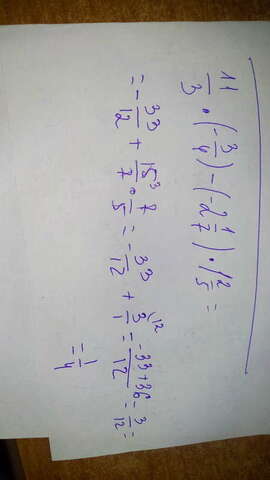 11/3 · (-3/4) - (-2 1/7) · 1 2/5 =
= -33/12 + 15³/7 · 7/5 = -33/12 + 3/1 ⁽¹² = -33+36/12 = 3/12 =
= 1/4